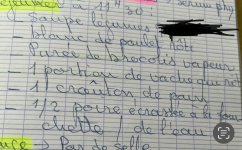 déjeuner à 11H30 : sérum phy
soupe légumes
- blanc de poulet rôti
Purée de brocolis vapeur
- 1 portion de vache qui rit
- 1 croûton de pain
- 1/2 poire écrasée à la four
chette / de l'eau
→ Pas de selle